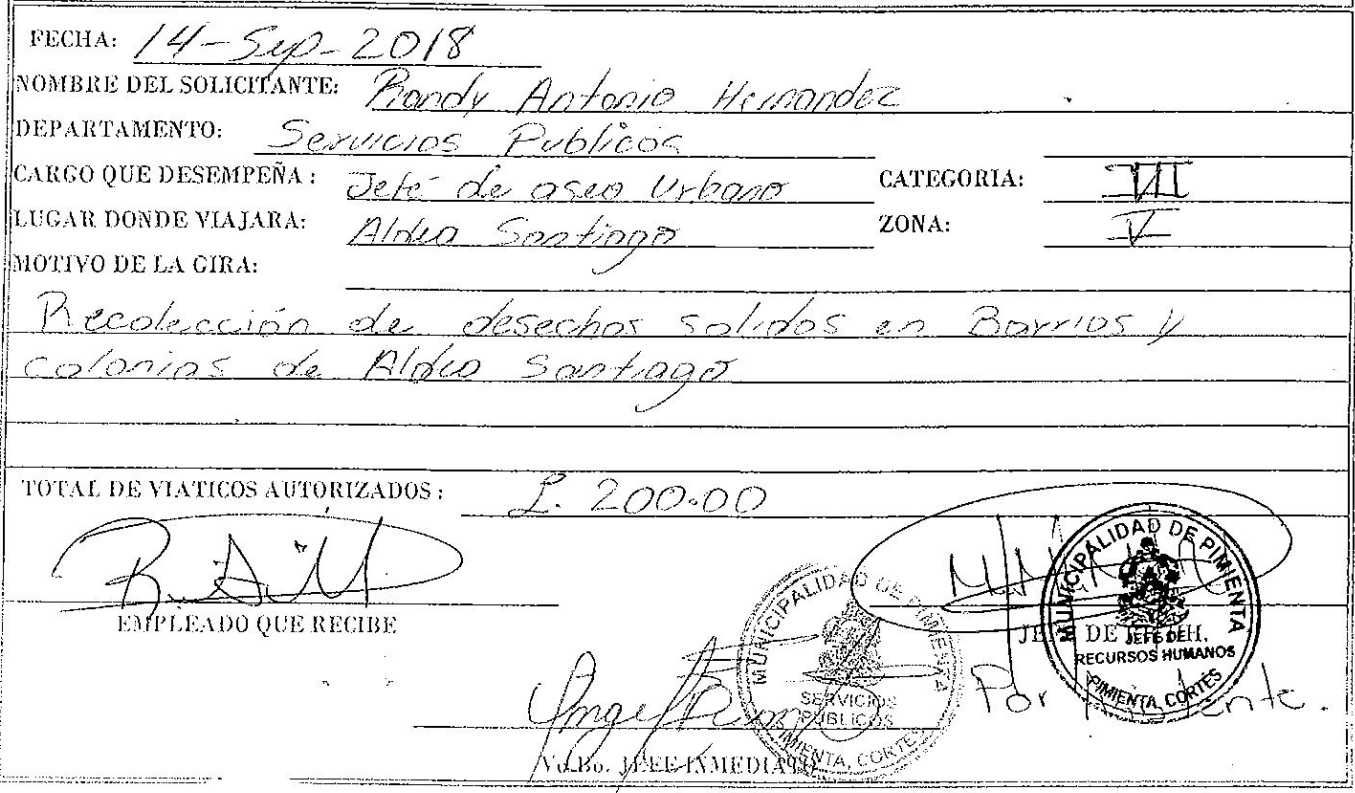 FECHA: 14-Sep-2018
NOMBRE DEL SOLICITANTE: Randy Antonio Hernandez
DEPARTAMENTO: Servicios Publicos
CARGO QUE DESEMPEÑA : Jefe de aseo Urbano CATEGORIA: VII
LUGAR DONDE VIAJARA: Aldea Santiago ZONA: V
MOTIVO DE LA GIRA:
Recolección de desechos solidos en Barrios y
colonias de Aldea Santiago
TOTAL DE VIATICOS AUTORIZADOS : L. 200.00
EMPLEADO QUE RECIBE
MUNICIPALIDAD DE PIMIENTA
JEFE DE
RECURSOS HUMANOS
PIMIENTA, CORTÉS
Por
MUNICIPALIDAD DE PIMIENTA
SERVICIOS
PUBLICOS
PIMIENTA, CORTES
Vo.Bo. JEFE INMEDIATO